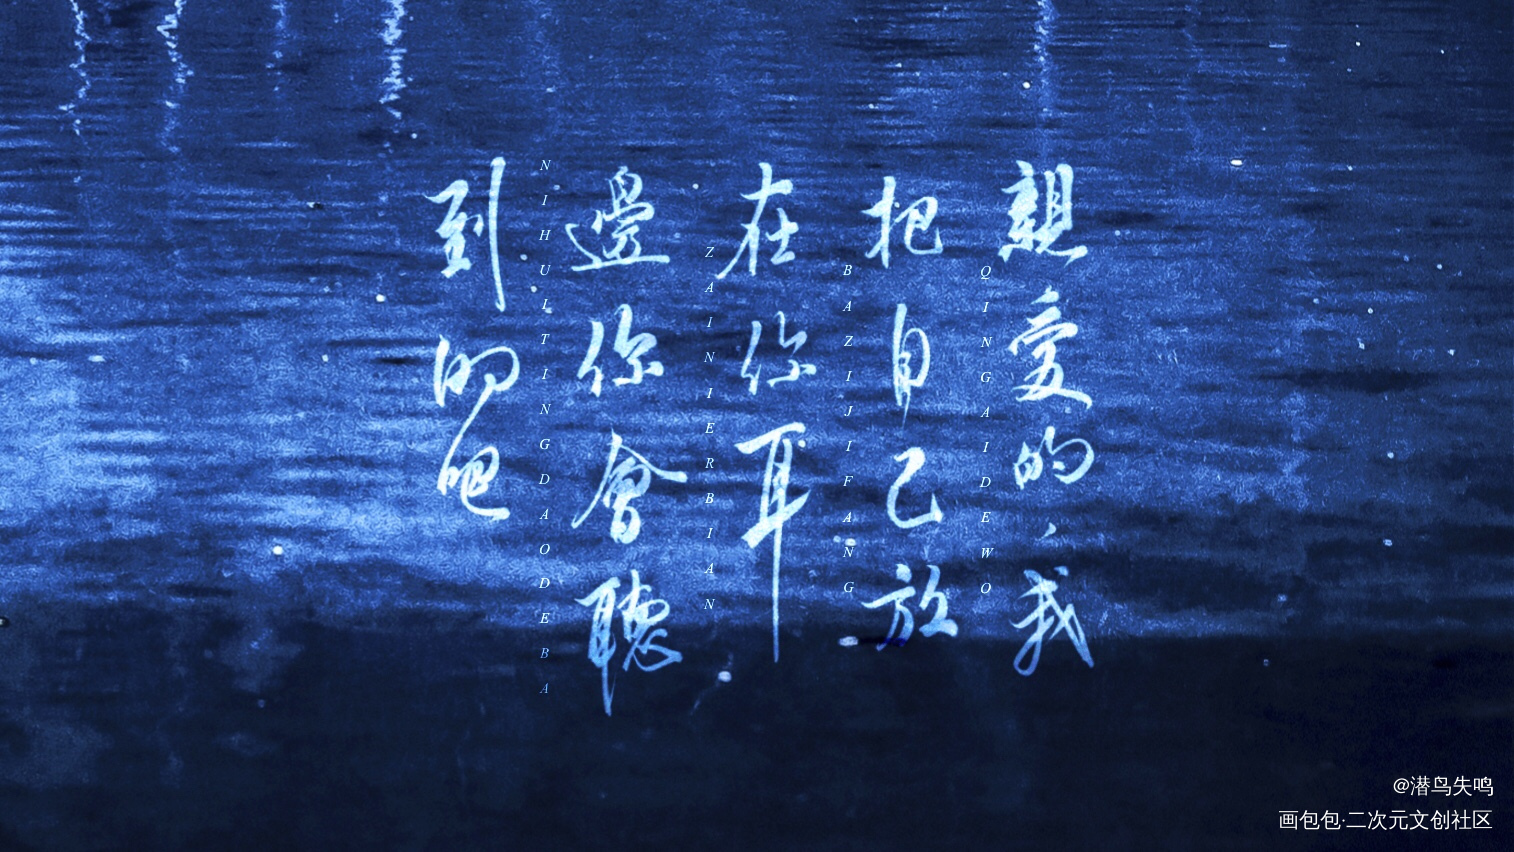 親愛的，我
QINGAIDEWO
把自己放
BAZIJIFANG
在你耳
ZAINIERBIAN
邊你會聽
NIHUITINGDAODEBA
到的吧
@潜鸟失鸣
画包包·二次元文创社区